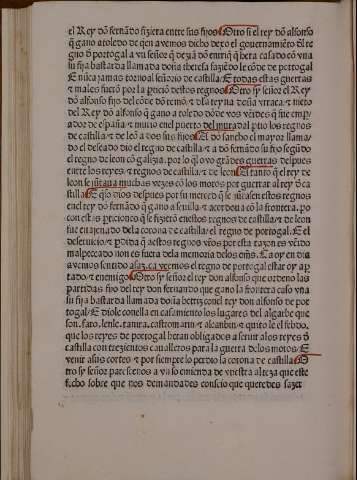 el Rey dõ fernãdo fiziera entre sus fijos Otro si el rey dõ alfonso
q̃ gano a toledo de qen avemos dicho dexo el gouernamiẽto dl re
gno d̃ portogal a vn señor q̃ deziã dõ enrriq̃ q̃ hera casado cõ vna
su fija bastarda llamada doña theresa faziẽdo le cõde de portogal
E nũca jamas torno al señorio de castilla E todas estas guerras
⁊ males fuerõ por la pticiõ destos regnos Otro sy señor el Rey
dõ alfonso fijo del cõde dõ remõ ⁊ dla reyna doña vrraca ⁊ nieto
del Rey dõ alfonso q̃ gano a toledo dõde vos venides q̃ fue emp
ador de españa ⁊ murio en el puerto del muradal ptio los regnos
de castilla ⁊ de leõ a dos sus fijos A dõ sancho el mayor llama/
do el deseado dio el regno de castilla ⁊ a dõ fernãdo su fijo segũdo
el regno de leon cõ galizia. por lo q̃l ovo grãdes guerras despues
entre los reyes ⁊ regnos de castilla ⁊ de leon E tanto q̃ el rey de
leon se jũtaua muchas vezes cõ los moros por guerrar al rey d̃ ca
stilla E q̃so dios despues por su merced q̃ se jũtasen estos regnos
en el rey dõ fernãdo q̃ gano a seuilla ⁊ a cordoua cõ la frontera. po
con estas pticiones q̃ se fizierõ en estos regnos de castilla ⁊ de leon
fue enajenado de la corona de castilla el regno de portogal. E el
deseruicio ⁊ pdida q̃ a estos regnos vr̃os por esta razon es venido
mal peccado non es fuera dela memoria de los om̃s. Ca oy en dia
avemos sentido asaz. ca veemos el regno de portogal estar oy ap
tado ⁊ enemigo Otro sy señor el rey don alfonso que ordeno las
partidas fijo del rey don fernando que gano la frontera caso vna
su fija bastarda llamada doña betriz con el rey don alfonso de por
togal E diole con ella en casamiento los lugares del algarbe que
son. faro. lenle. tauira. castromarin ⁊ alcanbin ⁊ quito le el febdo.
que los reyes de portogal heran obligados a seruir a los reyes d̃
castilla con trezientos caualleros para la guerra de los moros E
venir a sus cortes ⁊ por siempre lo perdio la corona de castilla O
tro sy señor paresce nos a vuso emienda de vuestra alteza que este
fecho sobre que nos demandades consejo que queredes fazer